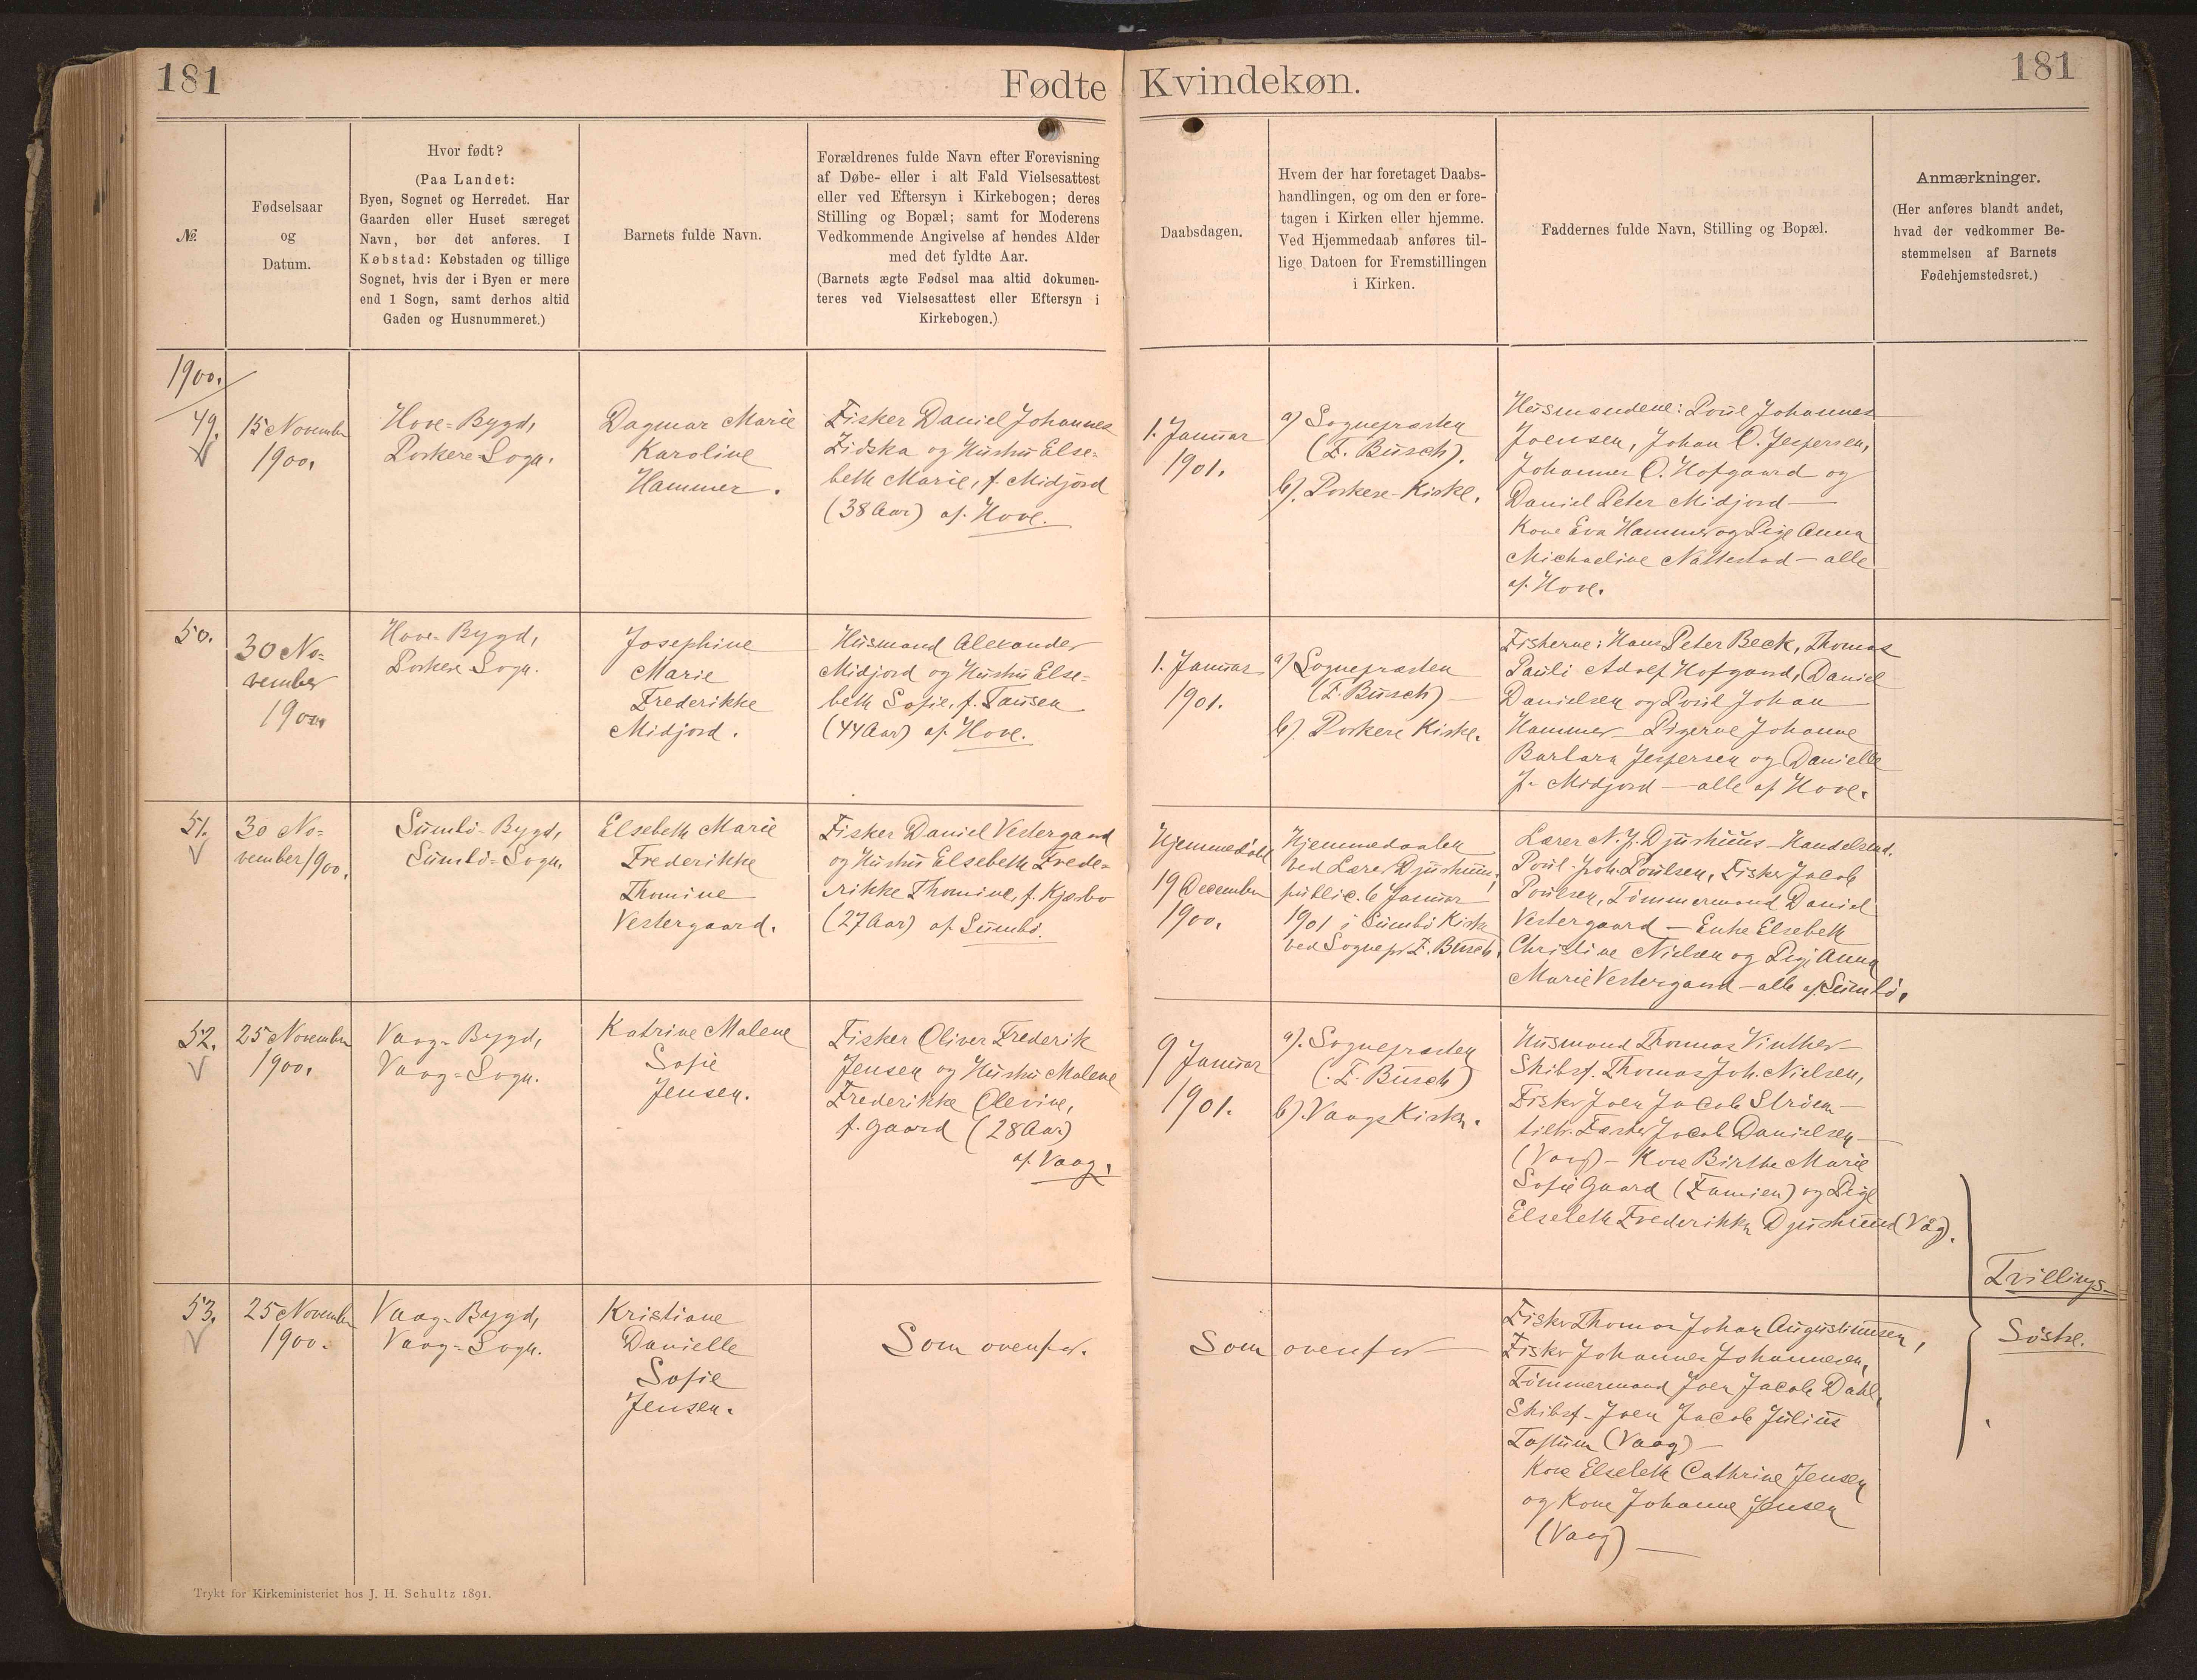 181
Fødte Kvindekøn.
181
№.
Fødselsaar
og
Datum.
Hvor født?
(Paa Landet:
Byen, Sognet og Herredet. Har
Gaarden eller Huset særeget
Navn, bør det anføres. I
Købstad: Købstaden og tillige
Sognet, hvis der i Byen er mere
end 1 Sogn, samt derhos altid
Gaden og Husnummeret.)
Barnets fulde Navn.
Forældrenes fulde Navn efter Forevisning
af Døbe- eller i alt Fald Vielsesattest
eller ved Eftersyn i Kirkebogen; deres
Stilling og Bopæl; samt for Moderens
Vedkommende Angivelse af hendes Alder
med det fyldte Aar.
(Barnets ægte Fødsel maa altid dokumen-
teres ved Vielsesattest eller Eftersyn i
Kirkebogen.)
Daabsdagen.
Hvem der har foretaget Daabs-
handlingen, og om den er fore-
tagen i Kirken eller hjemme.
Ved Hjemmedaab anføres til-
lige Datoen for Fremstillingen
i Kirken.
Faddernes fulde Navn, Stilling og Bopæl.
Anmærkninger.
(Her anføres blandt andet,
hvad der vedkommer Be-
stemmelsen af Barnets
Fødehjemstedsret.)
1900.
49.
15 November
1900.
Hove-Bygd,
Porkere-Sogn.
Dagmar Marie
Karoline
Hammer.
Fisker Daniel Johannes
Zidska og Hustru Else-
beth Marie, f. Midjord
(38 Aar) af Hove.
1. Januar
1901.
a) Sognepræsten
(F. Busch).
b). Porkere-Kirke.
Husmændene: Poul Johannes
Joensen, Johan O. Jespersen,
Johannes O. Hofgaard og
Daniel Peter Midjord —
Kone Eva Hammer og Pige Anna
Michaeline Nattestad — alle
af Hove.
50.
30 No-
vember
1900
Hove-Bygd,
Porkere Sogn.
Josephine
Marie
Frederikke
Midjord.
Husmand Alexander
Midjord og Hustru Else-
beth Sofie, f. Tausen
(44 Aar) af Hove.
1. Januar
1901.
a) Sognepræsten
(F. Busch) —
b). Porkere Kirke.
Fiskerne: Hans Peter Beck, Thomas
Pauli Adolf Hofgaard, Daniel
Danielsen og Poul Johan
Hammer — Pigerne Johanne
Barbara Jespersen og Danielle
J. Midjord — alle af Hove.
51.
30 No-
vember 1900.
Sumbö-Bygd,
Sumbö-Sogn.
Elsebeth Marie
Frederikke
Thomine
Vestergaard.
Fisker Daniel Vestergaard
og Hustru Elsebeth Frede-
rikke Thomine, f. Kjærbo
(27 Aar) af Sumbö.
Hjemmedöbt
19 December
1900.
Hjemmedaaben
ved Lærer Djurhuus,
public. 6 Januar
1901 i Sumbö Kirke
ved Sognepr. F. Busch.
Lærer N. J. Djurhuus — Handelsbud.
Poul Joh. Poulsen, Fisker Jacob
Poulsen, Tömmermand Daniel
Vestergaard — Enke Elsebeth
Christine Nielsen og Pige Anna
Marie Vestergaard — alle af Sumbö.
52.
25 November
1900.
Vaag-Bygd,
Vaag-Sogn.
Katrine Malene
Sofie
Jensen.
Fisker Oliver Frederik
Jensen og Hustru Malene
Frederikke Olevine,
f. Gaard (28 Aar)
af Vaag.
9 Januar
1901.
a). Sognepræsten
(F. Busch)
b). Vaags Kirke.
Husmand Thomas Vinther —
Skibsf. Thomas Joh. Nielsen,
Fisker Joen Jacob Ström —
Fæster Jacob Danielsen —
(Vaag) — Kone Birthe Marie
Sofie Gaard (Famien) og Pige
Elsebeth Frederikke Djurhuus (Våg).
53.
25 November
1900.
Vaag-Bygd,
Vaag-Sogn.
Kristiane
Danielle
Sofie
Jensen.
Som ovenfor.
Som ovenfor —
Fisker Thomas Johan Augustinussen,
Fisker Johannes Johannesen,
Tömmermand Joen Jacob Dahl,
Skibsf. Joen Jacob Julius
(Vaag) —
Kone Elsebeth Cathrine Jensen
og Kone Johanne Jensen
(Vaag) —
Tvillings-
Söstre.
Trykt for Kirkeministeriet hos J. H. Schultz 1891.